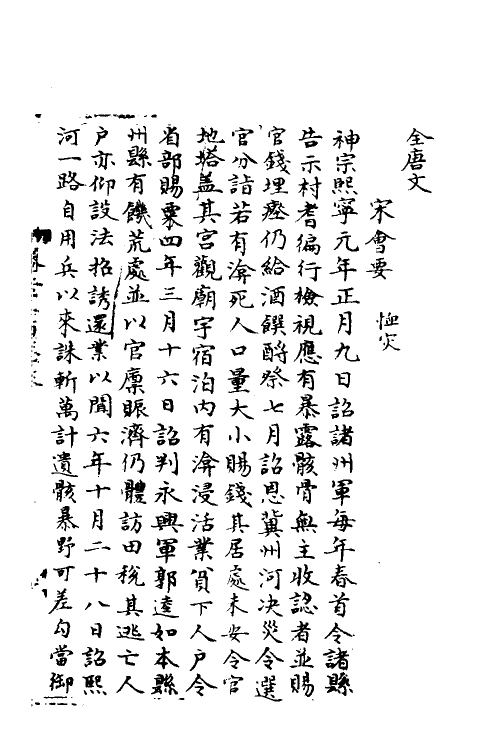 全唐文
宋會要 恤災
神宗熙寧元年正月九日詔諸州軍每年春首令諸縣
告示村耆徧行檢視應有暴露骸骨無主收認者並賜
官錢埋瘞仍給酒饌酹祭七月詔恩冀州河決災令選
官分詣若有渰死人口量大小賜錢其居處未安令官
地搭盖其宮觀廟宇宿泊內有渰浸活業貧下人戶令
省部賜粟四年三月十六日詔判永興軍郭逵如本縣
州縣有饑荒處並以官廩賑濟仍體訪田稅其逃亡人
戶亦仰設法招誘還業以聞六年十月二十八日詔熙
河一路自用兵以來誅斬萬計遺骸暴野可差勾當御